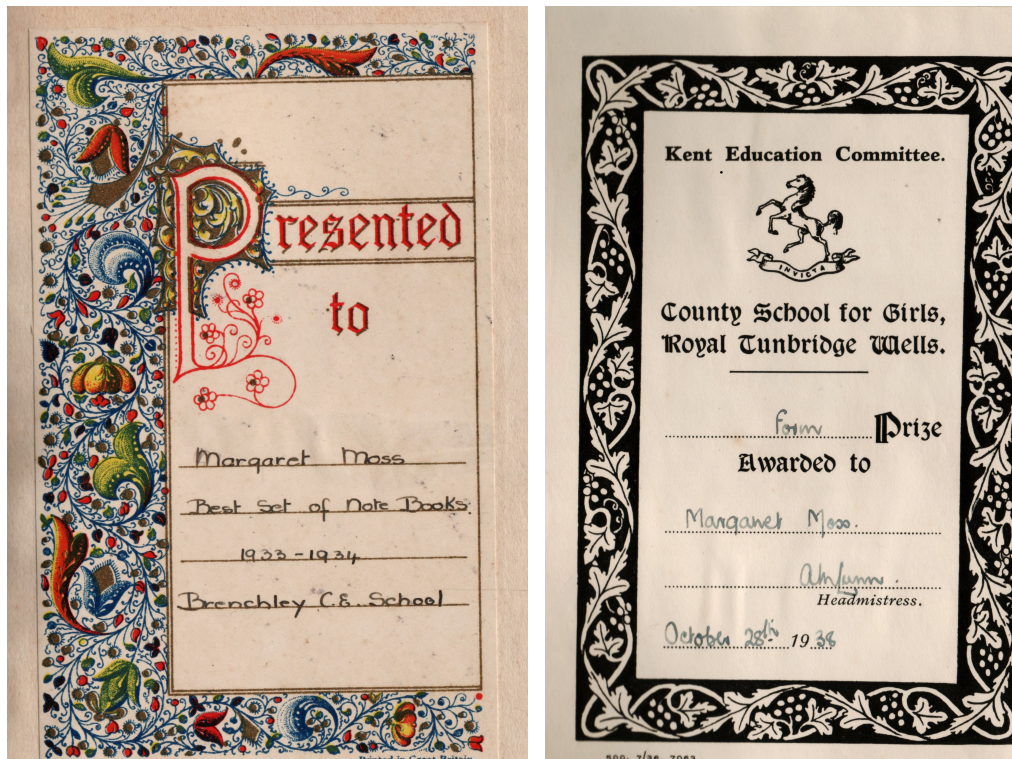 Presented
to
Margaret Moss
Best Set of Note Books.
1933-1934
Brenchley C.E. School
Printed in Great Britain
Kent Education Committee.
INVICTA
County School for Girls,
Royal Tunbridge Wells.
Form Prize
Awarded to
Margaret Moss.
Headmistress.
October 28th 1938
500. 7/36. 7063